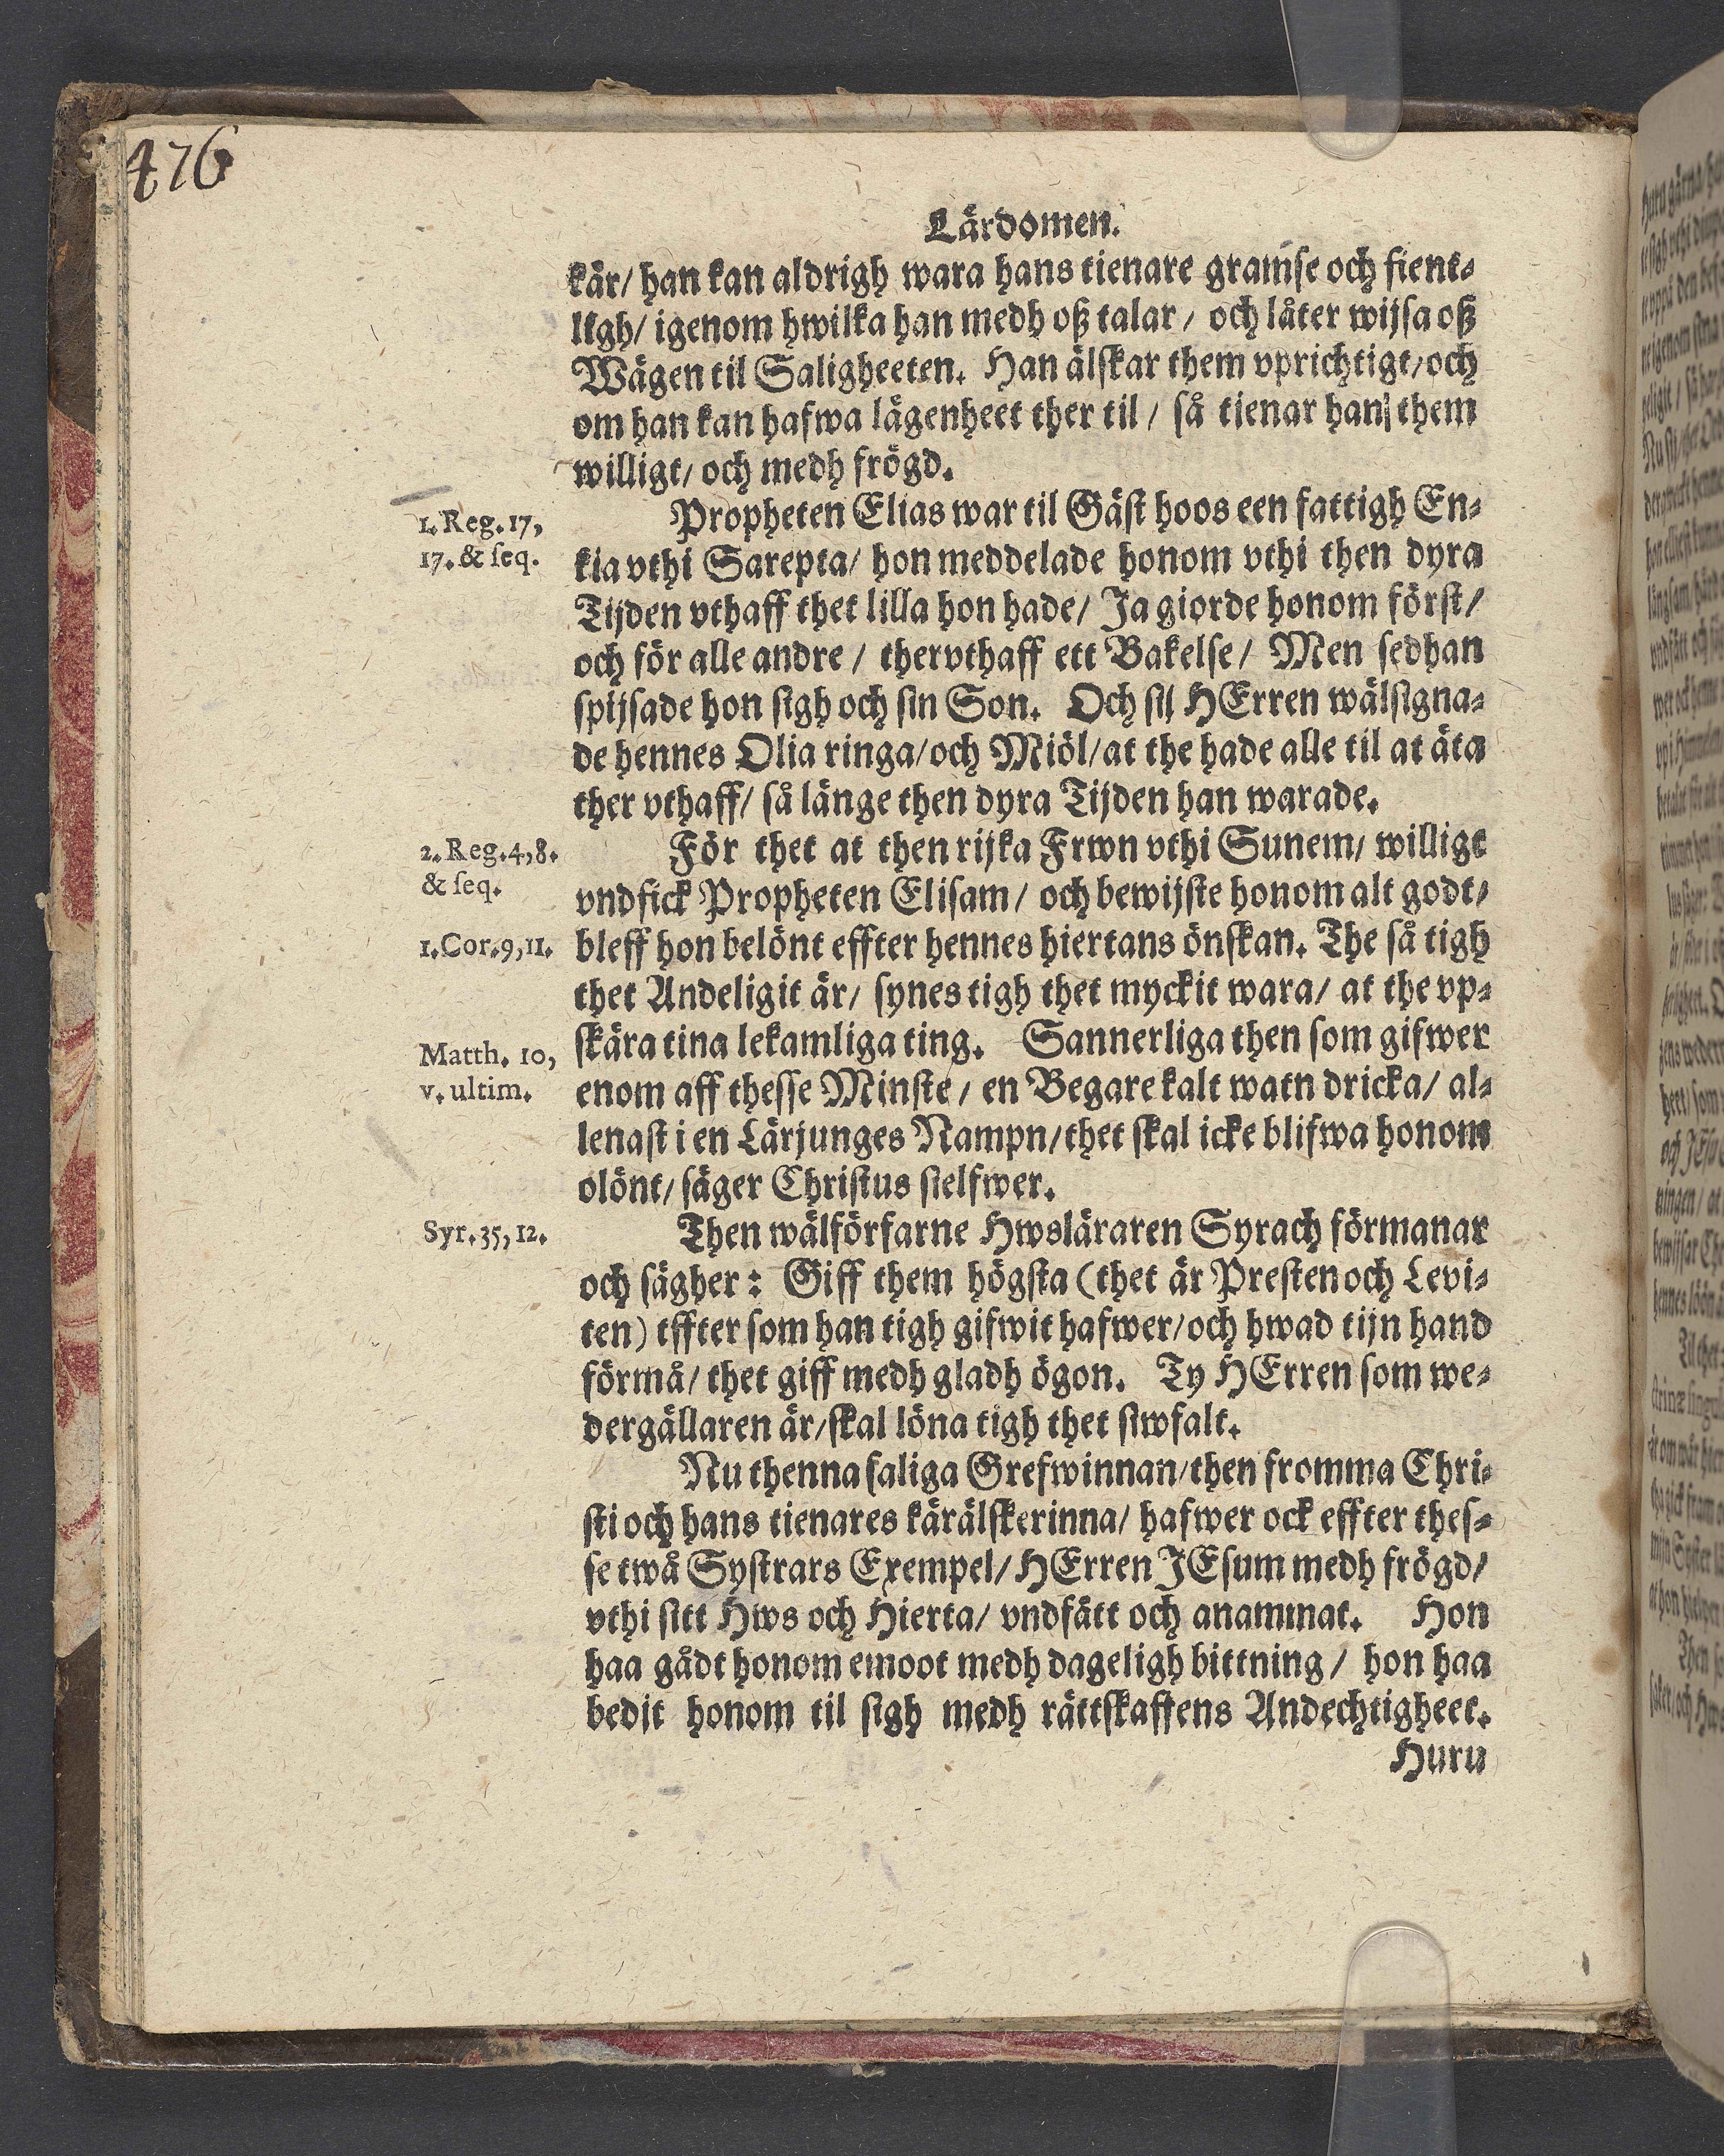 476
Lärdomen.
kår/ han kan aldrigh wara hans tienare gramse och fient⸗
ligh/ igenom hwilka han medh oß talar/ och låter wijsa oß
Wägen til Saligheeten. Han älskar them vprichtigt/ och
om han kan hafwa lägenheet ther til/ så tienar han them
willigt/ och medh frögd.
1. Reg. 17,
17. & seq.
Propheten Elias war til Gäst hoos een fattigh En⸗
kia vthi Sarepta/ hon meddelade honom vthi then dyra
Tijden vthaff thet lilla hon hade/ Ja giorde honom först/
och för alle andre/ thervthaff ett Bakelse/ Men sedhan
spijsade hon sigh och sin Son. Och sij HErren wälsigna⸗
de hennes Olia ringa/ och Miöl/ at the hade alle til at äta
ther vthaff/ så länge then dyra Tijden han warade.
2. Reg. 4, 8.
& seq.
För thet at then rijka Frwn vthi Sunem/ willigt
vndfick Propheten Elisam/ och bewijste honom alt godt/
1. Cor. 9, 11.
bleff hon belönt effter hennes hiertans önskan. The så tigh
thet Andeligit är/ synes tigh thet myckit wara/ at the vp⸗
Matth. 10,
v. ultim.
skära tina lekamliga ting. Sannerliga then som gifwer
enom aff thesse Minste/ en Begare kalt watn dricka/ al⸗
lenast i en Lärjunges Nampn/ thet skal icke blifwa honom
olönt/ säger Christus sielfwer.
Syr. 35, 12.
Then wälförfarne Hwsläraren Syrach förmanar
och sägher: Giff them högsta (thet är Presten och Levi⸗
ten) effter som han tigh gifwit hafwer/ och hwad tijn hand
förmå/ thet giff medh gladh ögon. Ty HErren som we⸗
dergällaren är/ skal löna tigh thet siwfalt.
Nu thenna saliga Grefwinnan/ then fromma Chri⸗
sti och hans tienares kärälskerinna/ hafwer ock effter thes⸗
se twå Systrars Exempel/ HErren JEsum medh frögd/
vthi sitt Hws och Hierta/ vndfått och anammat. Hon
haa gådt honom emoot medh dageligh bittning/ hon haa
bedit honom til sigh medh rättskaffens Andechtigheet.
Huru